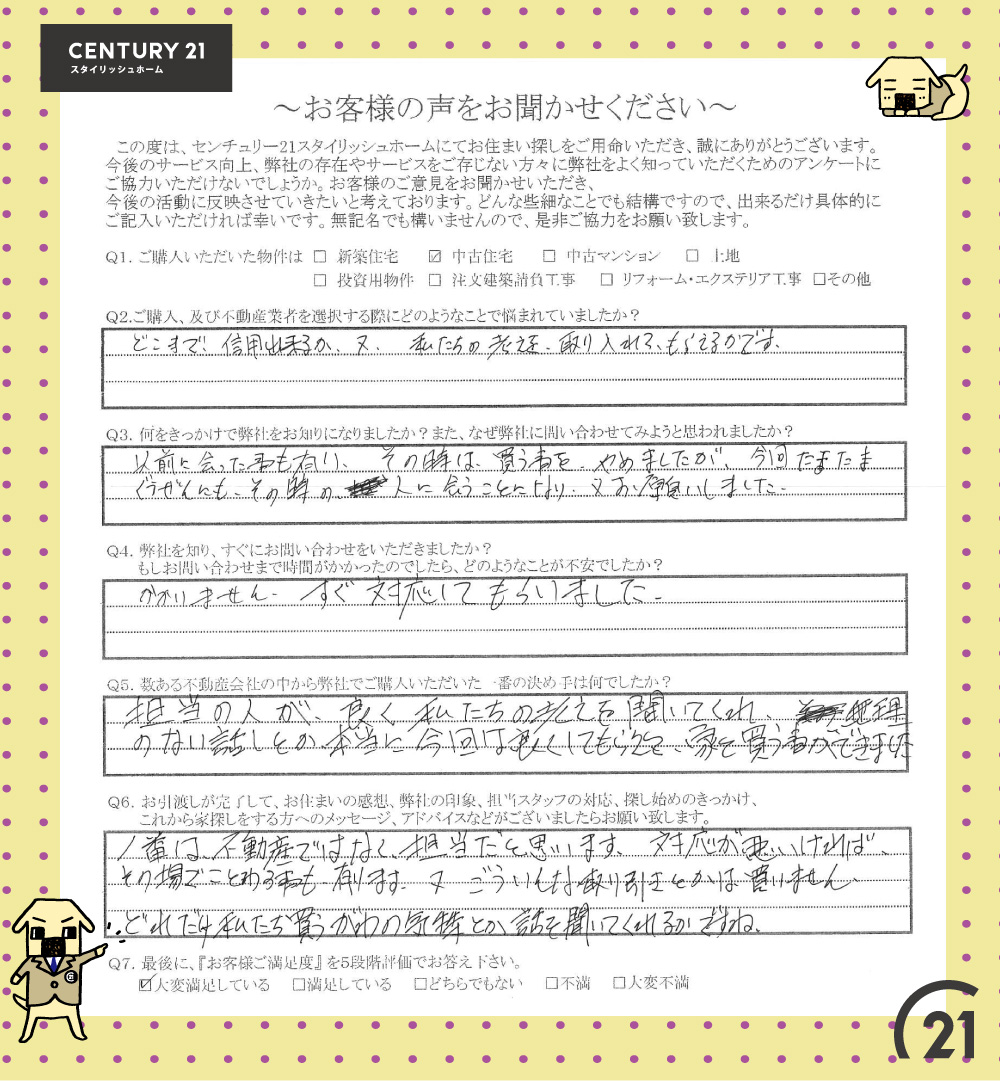 CENTURY 21
スタイリッシュホーム
～お客様の声をお聞かせください～
この度は、センチュリー21スタイリッシュホームにてお住まい探しをご用命いただき、誠にありがとうございます。
今後のサービス向上、弊社の存在やサービスをご存じない方々に弊社をよく知っていただくためのアンケートに
ご協力いただけないでしょうか。お客様のご意見をお聞かせいただき、
今後の活動に反映させていきたいと考えております。どんな些細なことでも結構ですので、出来るだけ具体的に
ご記入いただければ幸いです。無記名でも構いませんので、是非ご協力をお願い致します。
Q1. ご購入いただいた物件は □ 新築住宅 ☑ 中古住宅 □ 中古マンション □ 土地
□ 投資用物件 □ 注文建築請負工事 □ リフォーム・エクステリア工事 □その他
Q2.ご購入、及び不動産業者を選択する際にどのようなことで悩まれていましたか？
どこまで、信用出来るか、又、私たちの考えを、取り入れて、もらえるかです。
Q3. 何をきっかけで弊社をお知りになりましたか？また、なぜ弊社に問い合わせてみようと思われましたか？
以前に会った事も有り、その時は、買う事を、やめましたが、今回たまたま
ぐうぜんにも、その時の、人に会うことになり、又お願いしました。
Q4. 弊社を知り、すぐにお問い合わせをいただきましたか？
もしお問い合わせまで時間がかかったのでしたら、どのようなことが不安でしたか？
かかりません。すぐ対応してもらいました。
Q5. 数ある不動産会社の中から弊社でご購入いただいた一番の決め手は何でしたか？
担当の人が、良く私たちの考えを聞いてくれ、無理
のない話しとか、本当に今回は良くしてもらえて、家を買う事ができました
Q6. お引渡しが完了して、お住まいの感想、弊社の印象、担当スタッフの対応、探し始めのきっかけ、
これから家探しをする方へのメッセージ、アドバイスなどがございましたらお願い致します。
1番は、不動産ではなく、担当だと思います。対応が悪いければ、
その場でことわる事も有ります。又ごういんな取り引きとかは買いません。
どれだけ私たち買うがわの気持とか、話を聞いてくれるかですね。
Q7. 最後に、『お客様ご満足度』を5段階評価でお答え下さい。
☑大変満足している □満足している □どちらでもない □不満 □大変不満
21